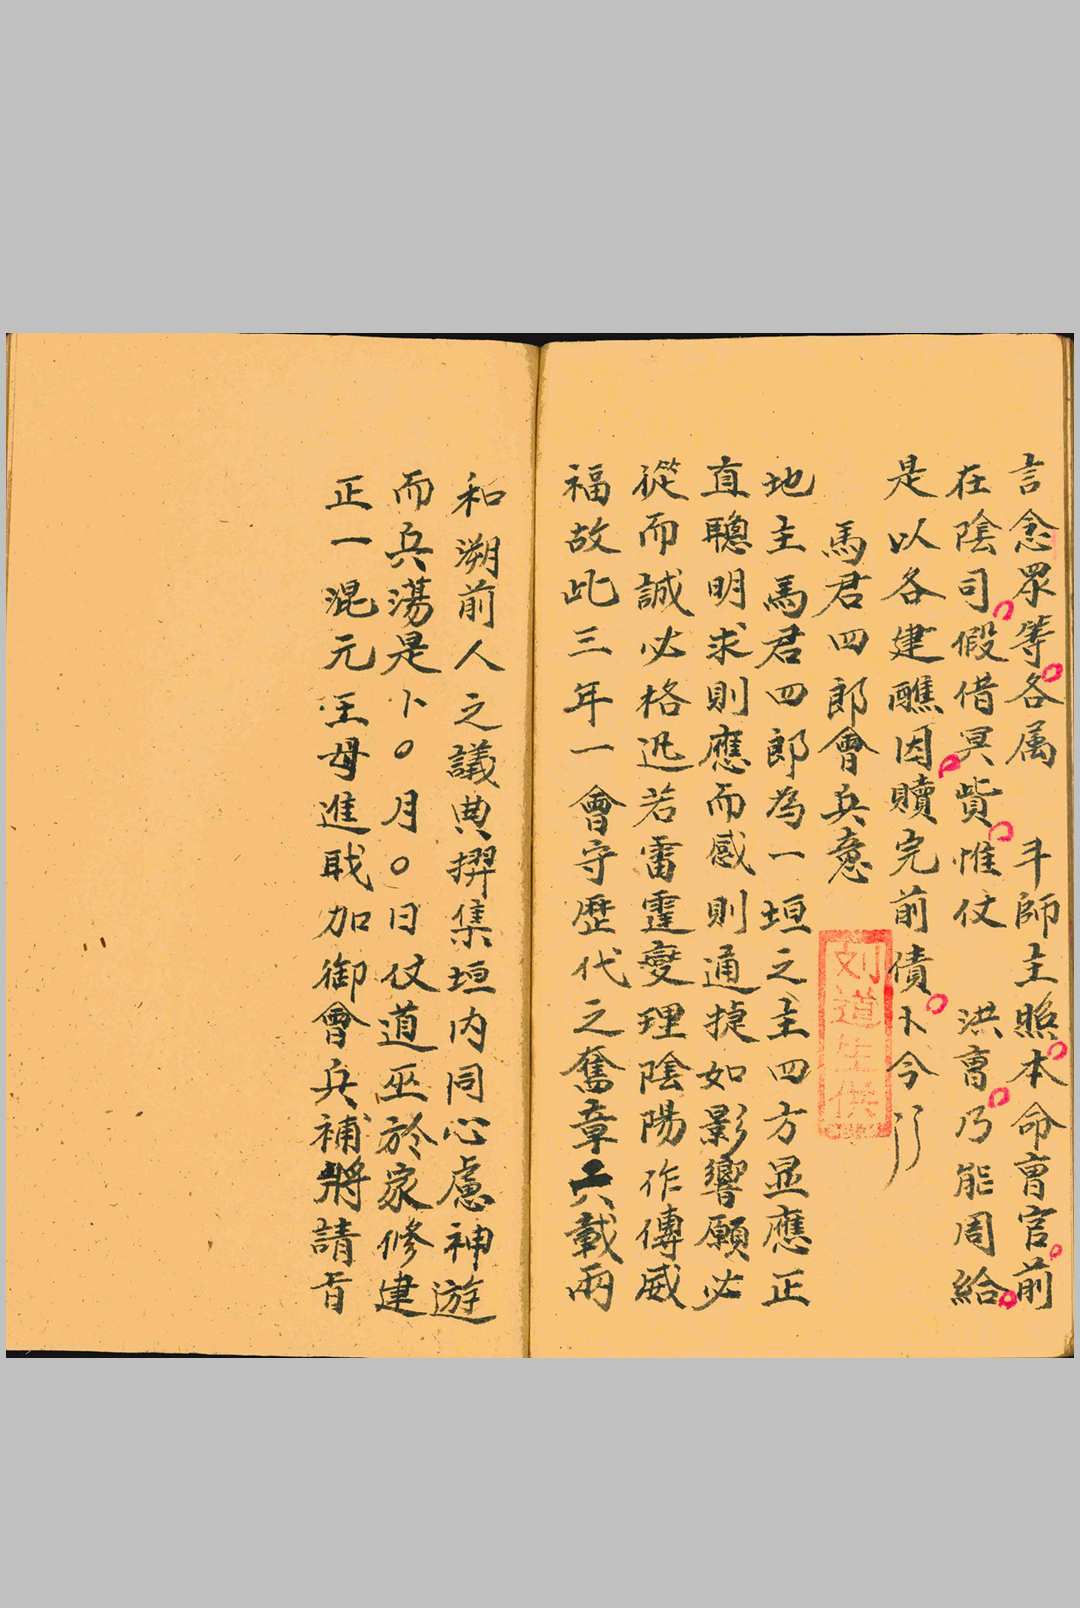 言念眾等各属　斗師主照本命曹官前
在陰司假借冥貲惟仗　洪曹乃能周給
是以各建醮因贖完前債卜今
馬君四郎會兵意
地主馬君四郎為一垣之主四方显應正
直聰明求則應而感則通捷如影響願必
從而誠必格迅若雷霆變理陰陽作傳威
福故此三年一會守歷代之舊章六載兩
和溯前人之議典擇集垣内同心慮神遊
而兵蕩是卜〇月〇日仗道巫於家修建
正一混元王母進戢加御會兵補將請旨
刘道生供